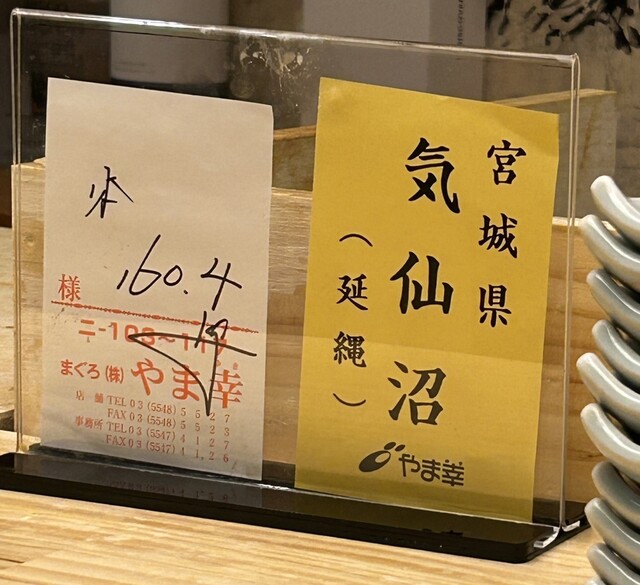 160.4
様
ニ-103~117
まぐろ(株)やま幸
店舗 TEL 03(5548)5527
FAX 03(5548)5523
事務所 TEL 03(5547)4127
FAX 03(5547)4126
宮城県
気仙沼
(延縄)
やま幸